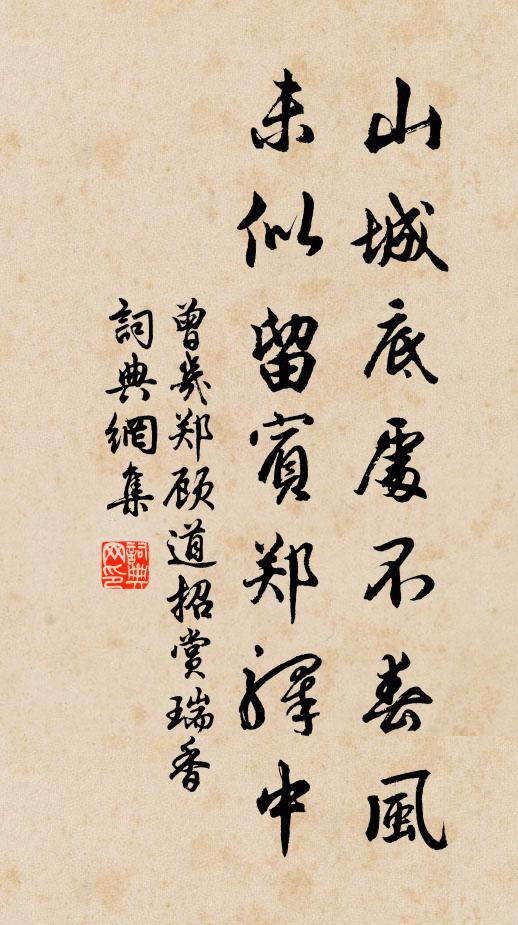 山城底處不春風
未似留賓郑驛中
曾幾郑顾道招赏瑞香
詞典網集
詞典网印